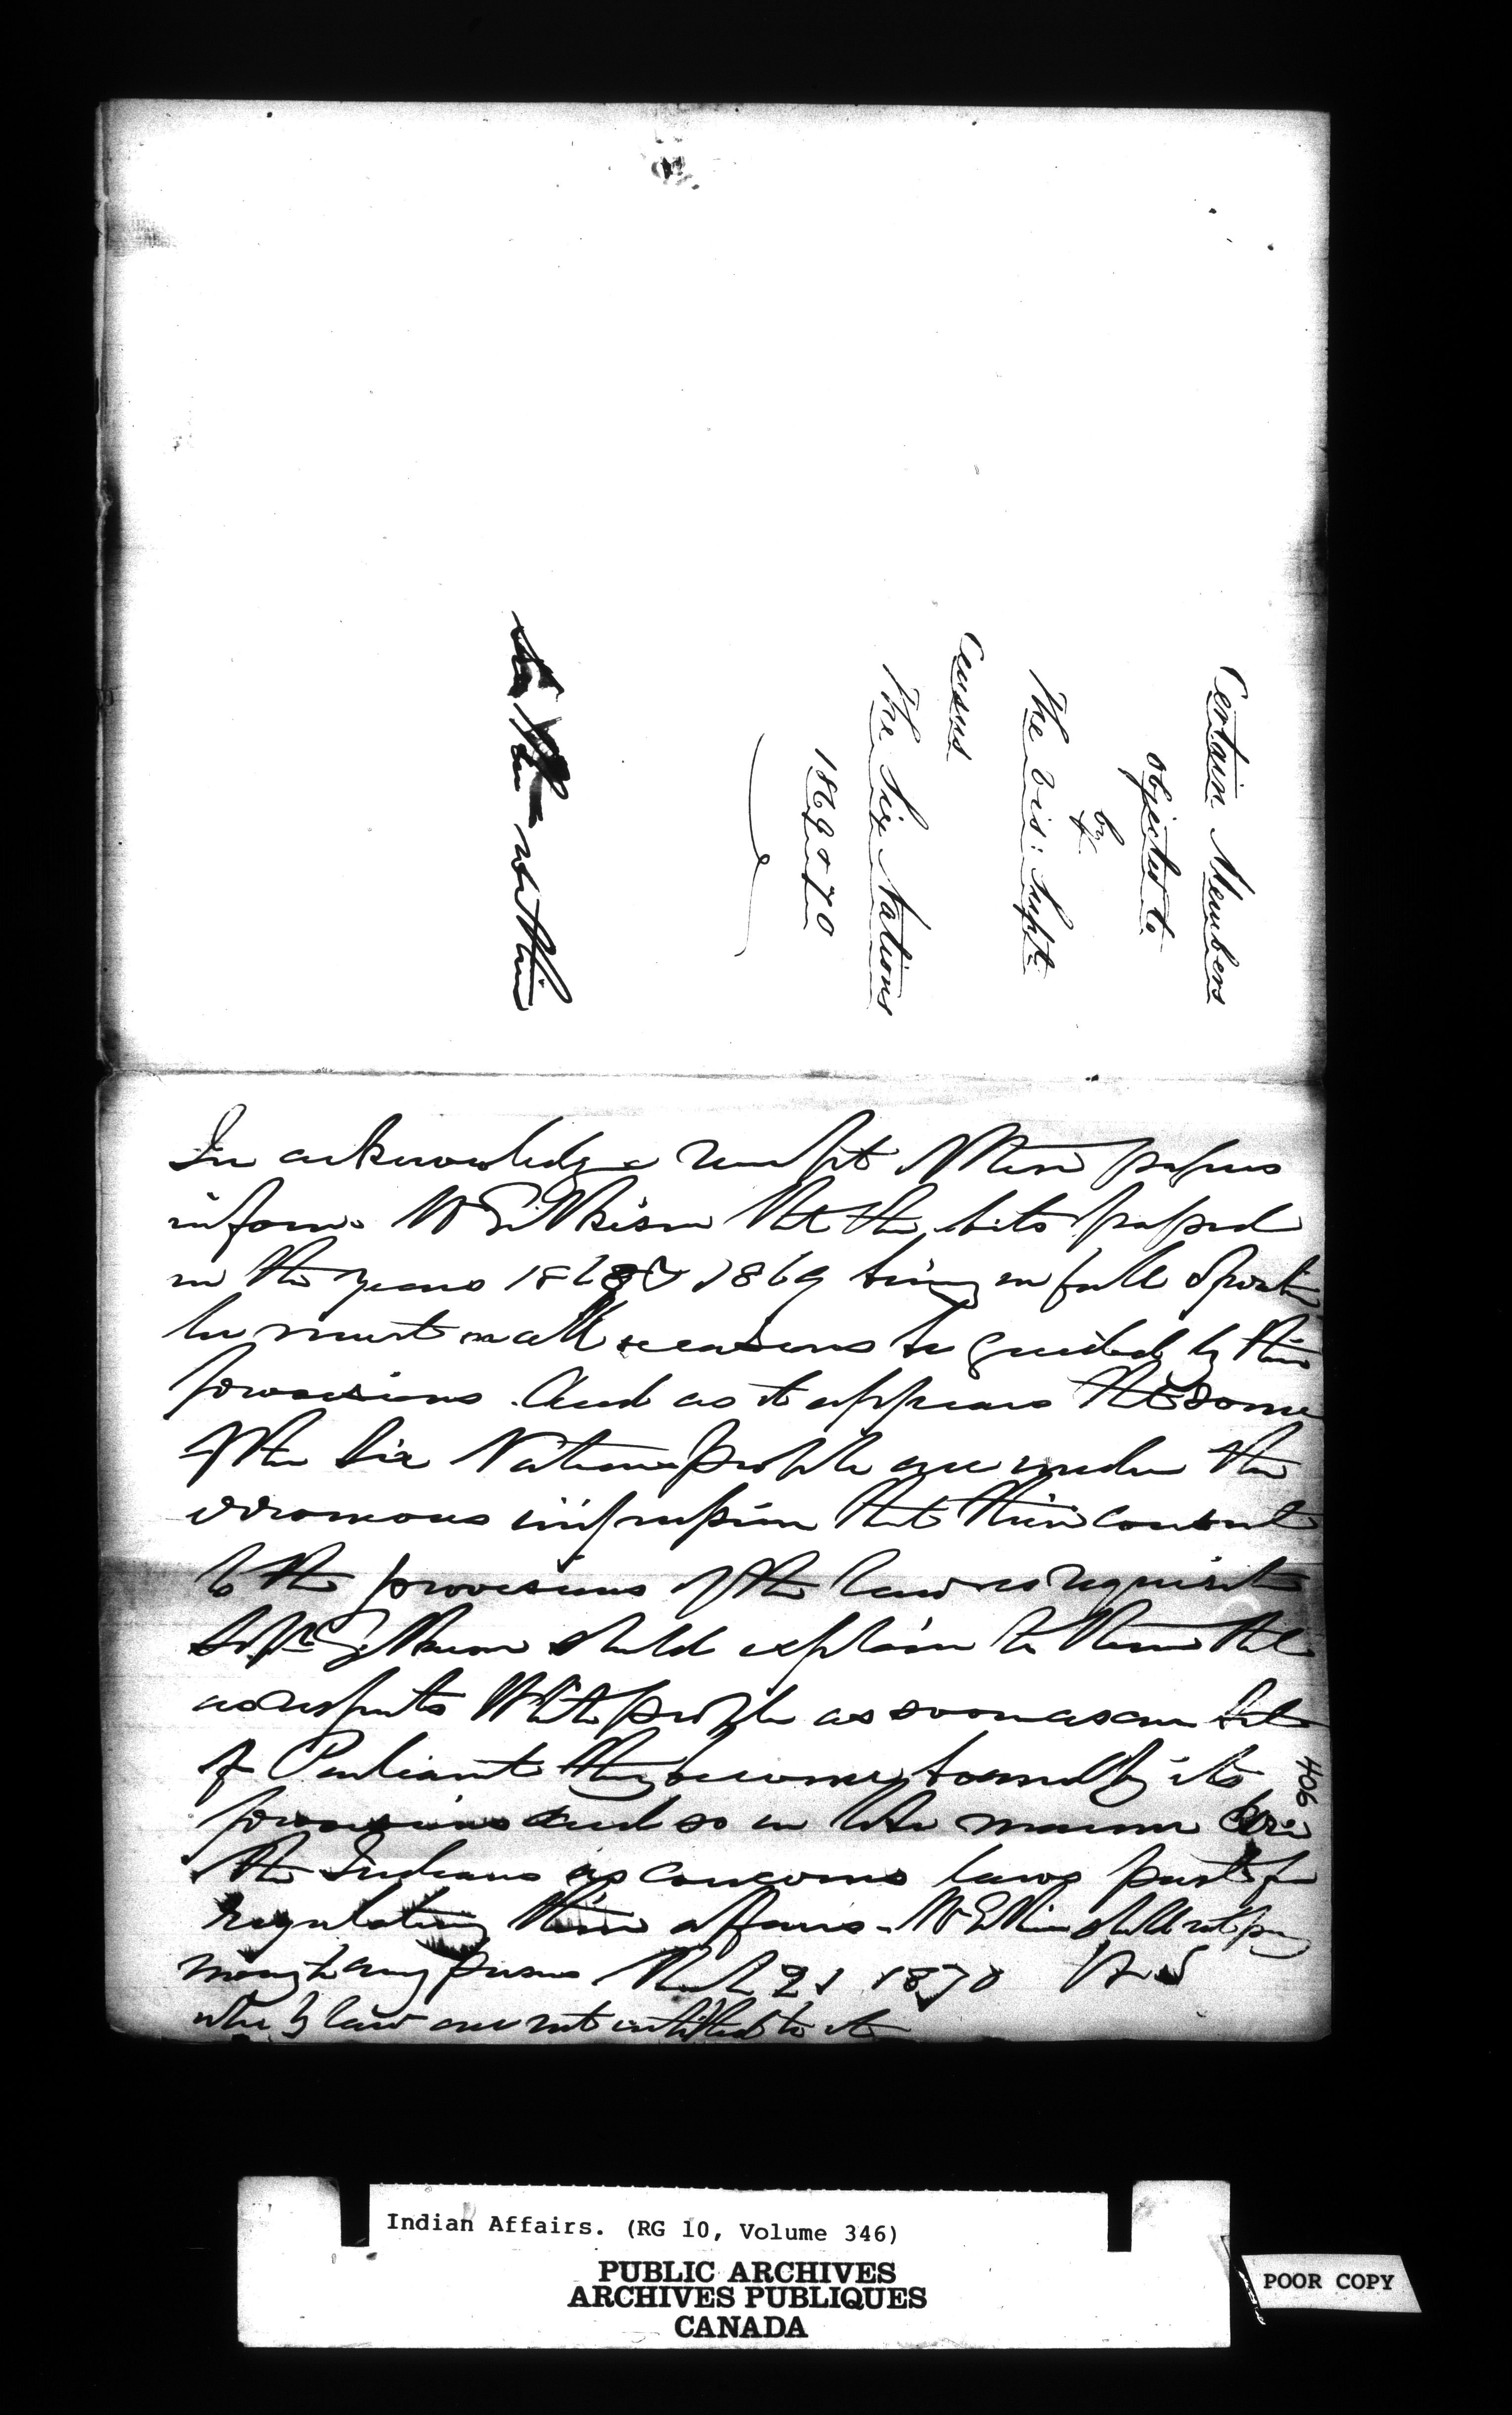 Certain Members
objected to
by
The Vis: Supt.
Census
The Six Nations
1869 & 70
within
In acknowledge receipt of these papers
inform Mr Gilkison that the Acts passed
in the years 1868 & 1869 being in full operation
he must in all be guided by their
provisions. And as it appears that some
of the Six Nations people are under the
erroneous impression that their consent
to the provisions of the law is requisite
Mr Gilkison should explain to them that
as respects White people as soon as an Act
of Parliament they become bound by its
provisions and so in like manner are
the Indians as concerns laws passed for
regulating their affairs. Mr Gilkison should not pay
money to any persons 21 1870
who by law are not entitled to it
406
Indian Affairs. (RG 10, Volume 346)
PUBLIC ARCHIVES
ARCHIVES PUBLIQUES
CANADA
POOR COPY